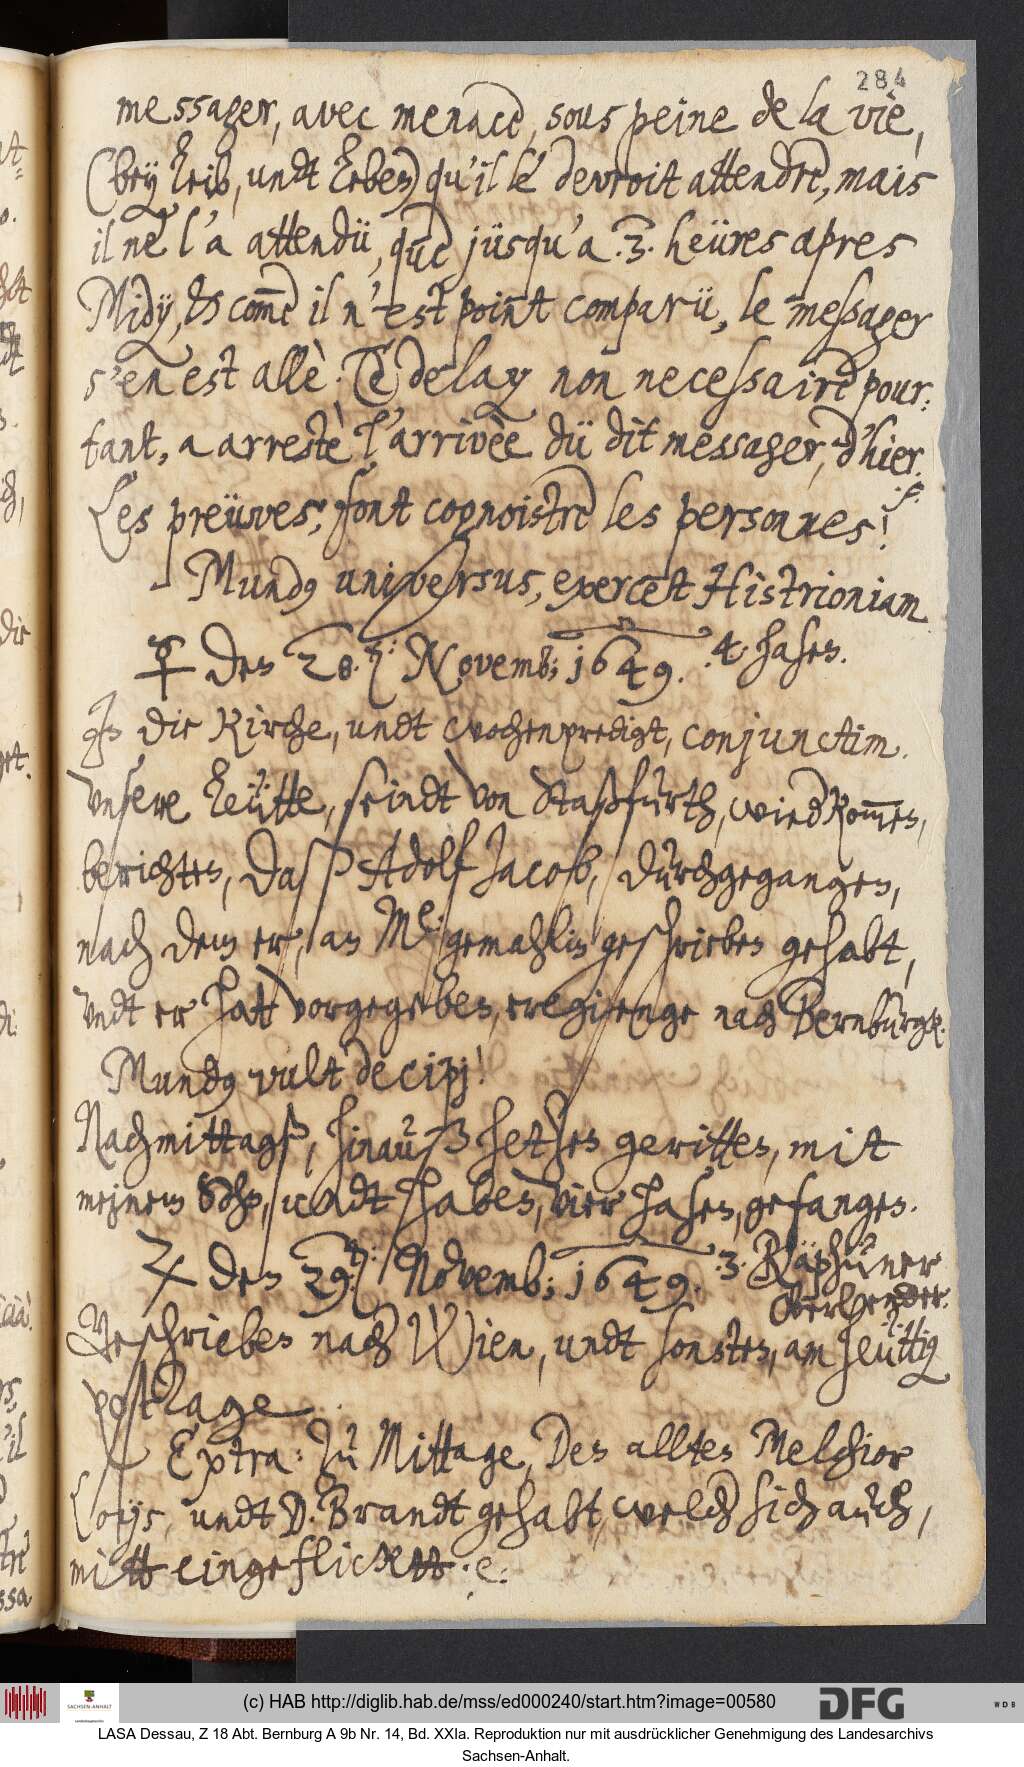 284
messager, avec menace, sous peine de la vie,
(bey Leib, undt Leben) qu'il le devroit attendre, mais
il ne l'a attendü, que jüsqu'a .3. heüres apres
Midÿ, & com̄e il n'est point comparü, le messager
s'en est allè. Ce delay non necessaire pour-
tant, a arrestè l'arrivèe dü dit messager, d'hier. 
Les preüves, font cognoistre les personnes!
Mundg universus, exercet Histrioniam.
♀ den 28. Novemb: 1649. .4. hasen.
Jn die Kirche, undt wochenpredigt, conjunctim.
Vnsere Leütte, seindt von Staßfurth, wied kom̄en,
berichten, daß Adolf Jacob, durchgegangen,
nach dem er, an Me: gemahlin geschrieben gehabt,
Vndt er hatt vorgegeben, er gienge nach Bernburgk.
Mundg vult decipj!
Nachmittagß, hinauß hetzen geritten, mitt
meinem Sohn, undt haben, vier hasen, gefangen.
♃ den 29. Novemb: 1649. .3. Räphüner
Oberlender.
Geschrieben nach Wien, undt sonsten, am heüttig
postTage
Extra: zu Mittage, den allten Melchior
Loyß, undt D. Brandt gehabt, welch sich auch,
mitt eingeflickett. e.
(c) HAB http://diglib.hab.de/mss/ed000240/start.htm?image=00580
SACHSEN-ANHALT
DFG
WDB
LASA Dessau, Z 18 Abt. Bernburg A 9b Nr. 14, Bd. XXIa. Reproduktion nur mit ausdrücklicher Genehmigung des Landesarchivs
Sachsen-Anhalt.